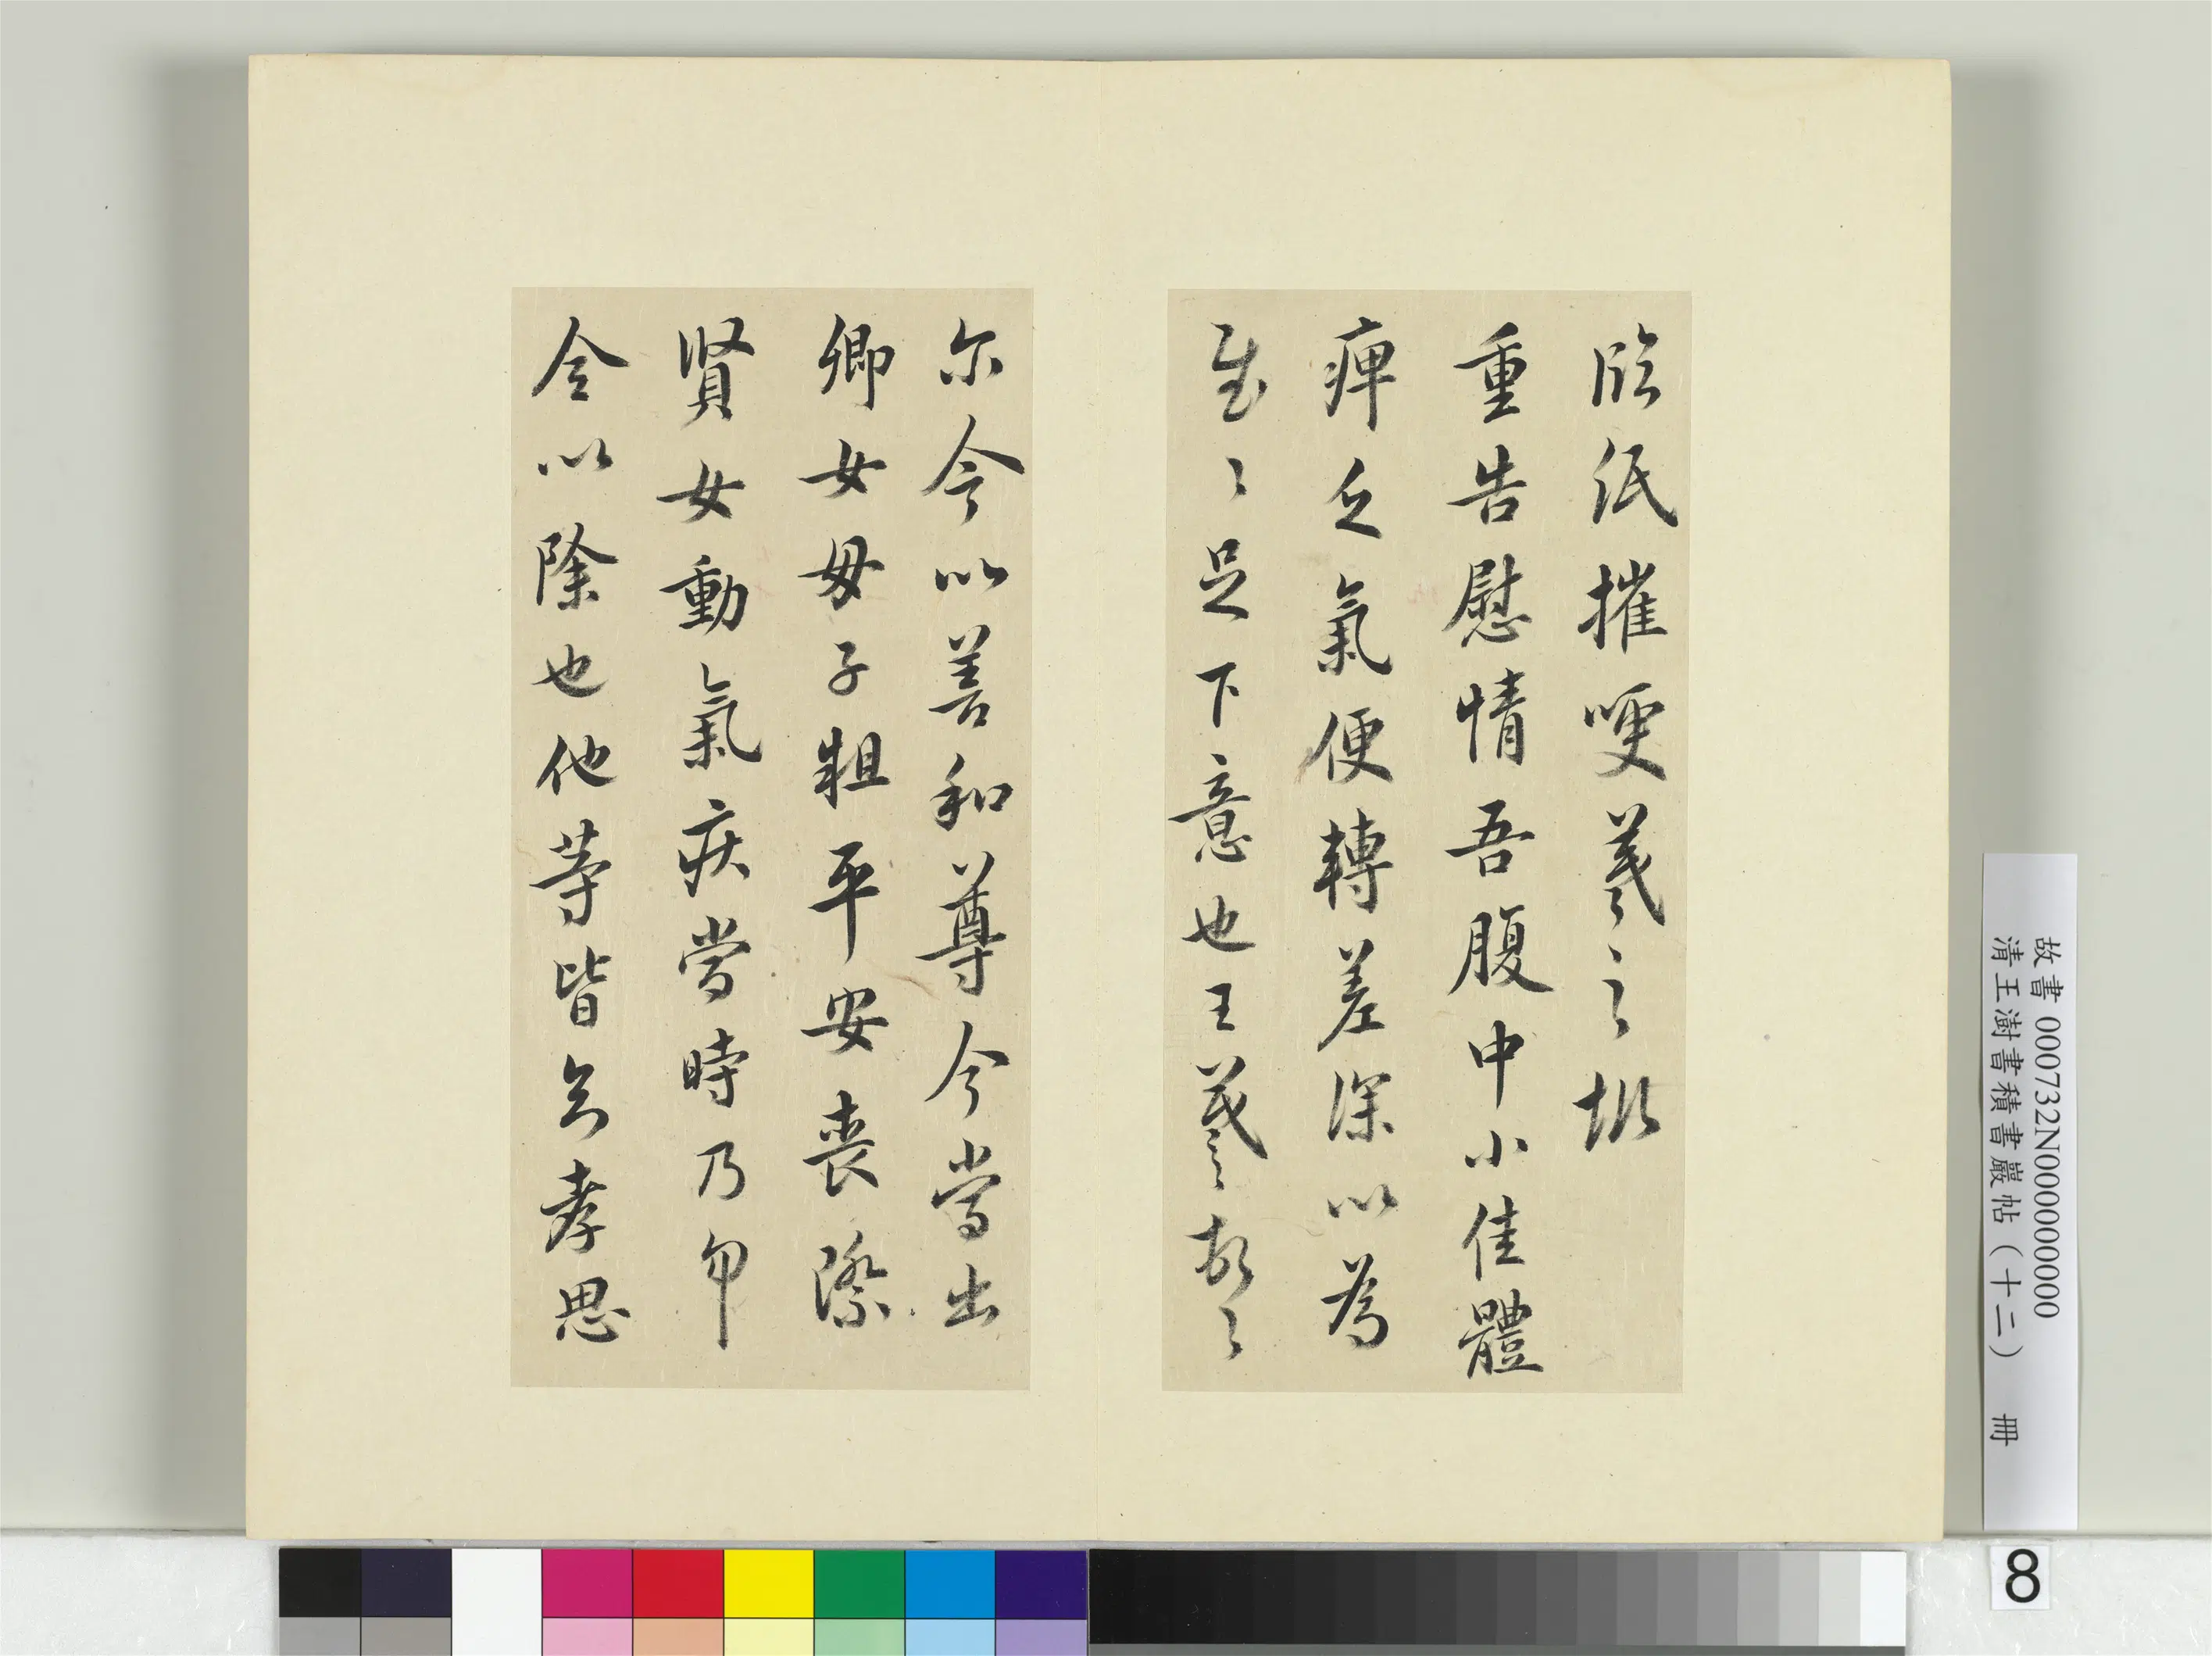 臨紙摧哽羲之
重告慰情吾腹中小佳體
痺乏氣便轉差深以為
足下意也王羲之
尔今以善和尊今當出
卿女母子粗平安喪際
賢女動氣疾當時乃
以除也他等皆孝思
故書 000732N000000000
清王澍書積書巖帖（十二） 冊
8